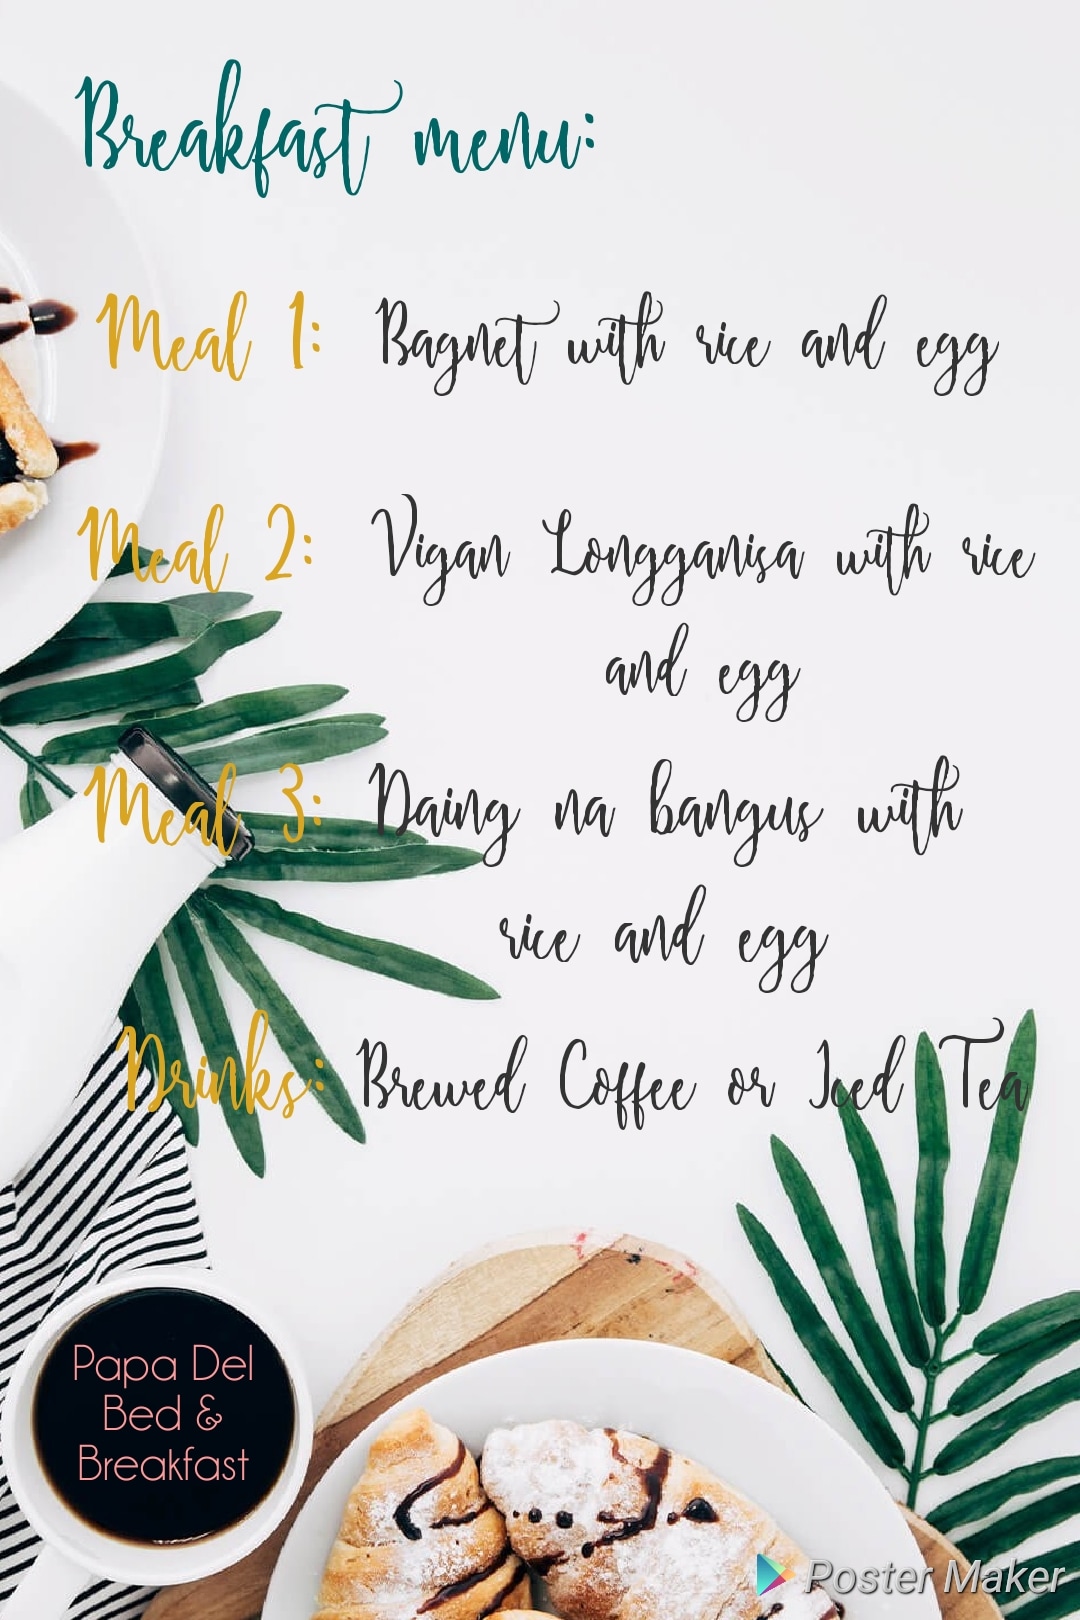 Breakfast menu:
Meal 1: Bagnet with rice and egg
Meal 2: Vigan Longganisa with rice
and egg
Meal 3: Daing na bangus with
rice and egg
Drinks: Brewed Coffee or Iced Tea
Papa Del
Bed &
Breakfast
Poster Maker